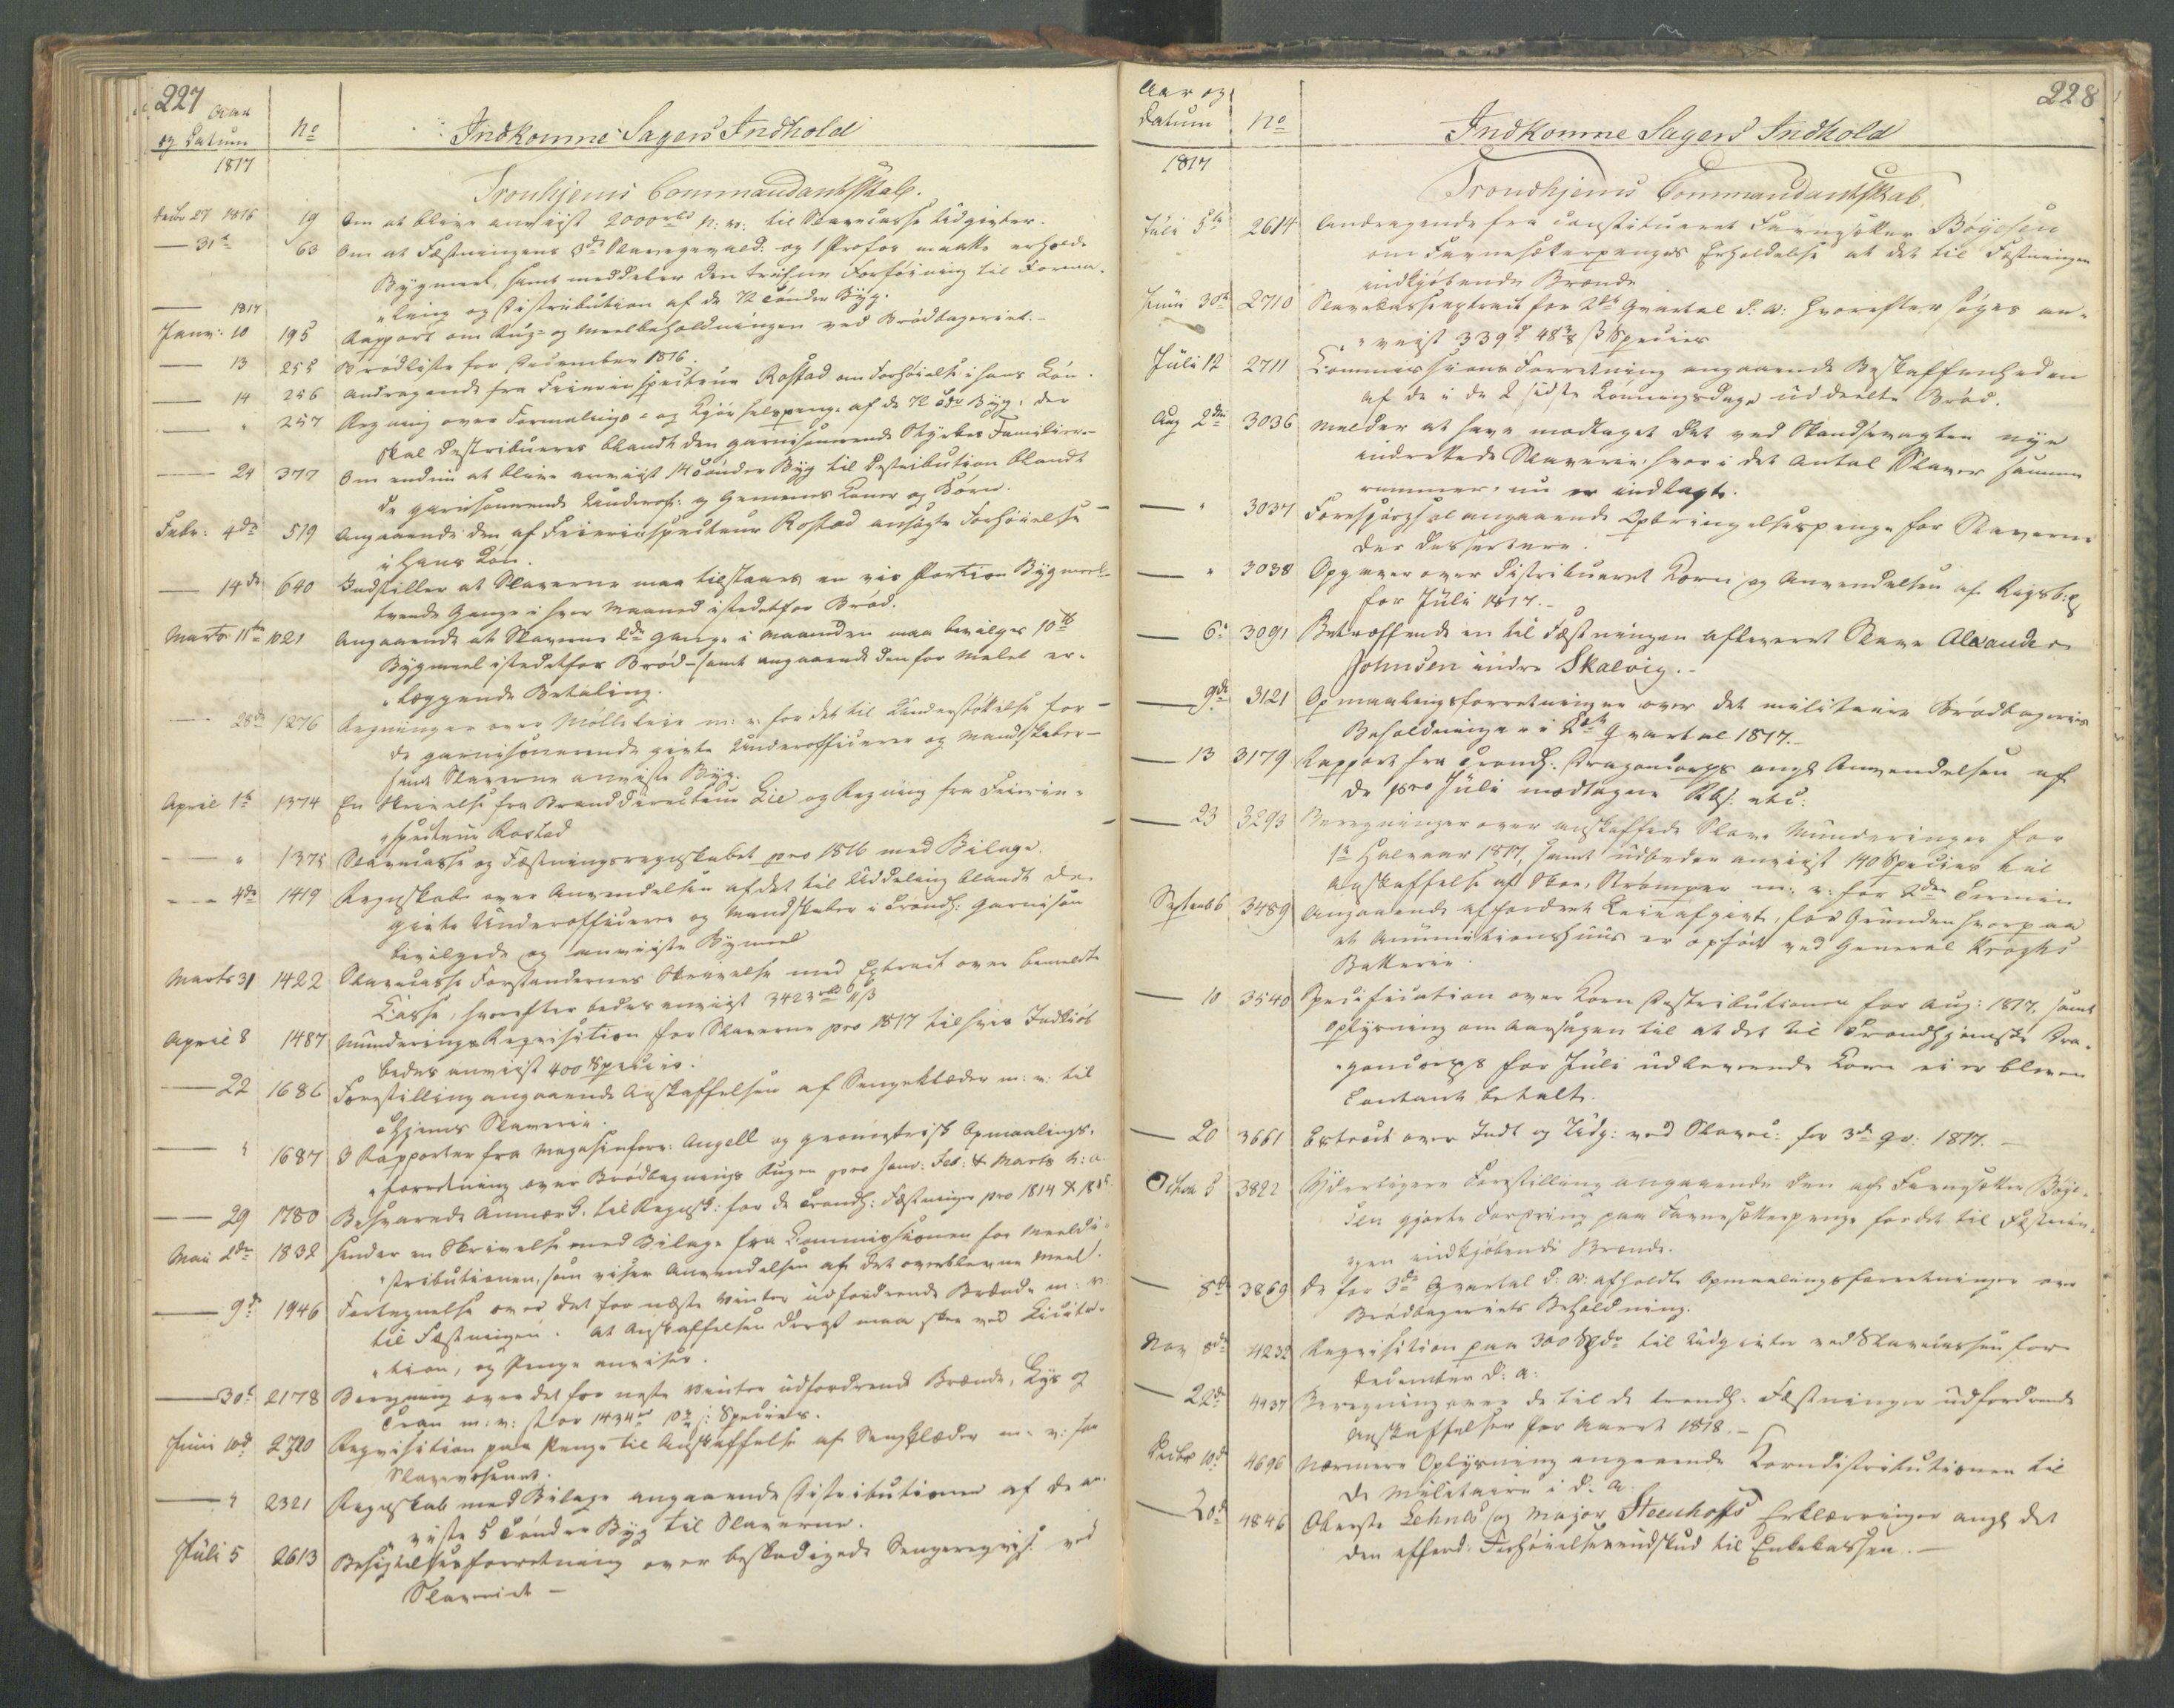 227
Aar
og Datum
No
Indkomne Sagers Indhold
1817
Tronhjems Commandantskab.
Decbr 27 1816 19 Om at blive anviist 2000 rbd n: v: til Slavecasse Udgivter.
— 31te 63 Om at Fæstningens 3de Slavegevald: og 1 Profos maatte erholde
Bygmeel, samt meddeler den trufne Forføining til Forma-
ling og Distribution af de 72 Tønder Byg.
— 1817
Janv: 10 195 Rapport om Rug- og Meelbeholdningen ved Brødbageriet.-
— 13 255 Brødliste for December 1816.
— 14 256 Andragende fra Feierinspecteur Rostad om Forhøielse i hans Løn.
— " 257 Regning over Formalings- og Kjørselspenge af de 72 Tdr Byg, der
skal distribueres blandt den garnisonerende Styrkes Familier.-
— 24 377 Om endnu at blive anviist 14 Tønder Byg til Distribution blandt
de garnisonerende Underof: og Gemenes Koner og Børn. -
Febr: 4de 519 Angaaende den af Feierinspecteur Rostad ansøgte Forhøielse
i hans Løn.
— 14de 640 Indstiller at Slaverne maa tilstaaes en vis Portion Bygmeel
tvende Gange i hver Maaned istedetfor Brød.
Marts 11te 1021 Angaaende at Slaverne 2de Gange i Maaneden maa bevilges 10 ℔
Bygmeel istedetfor Brød - samt angaaende den for Melet er-
læggende Betaling.
— 28de 1276 Regninger over Mølleleie m: v: for det til Understøttelse for -
de garnisonerende givte Underofficerer og Mandskaber -
samt Slaverne anviste Byg.
April 1te 1374 En Skrivelse fra Branddirecteur Lie og Regning fra Feierin-
specteur Rostad
— " 1375 Slavecasse og Fæstningsregnskabet pro 1816 med Bilage.
— 4de 1419 Regnskab over Anvendelsen af det til Uddeling blandt de
givte Underofficerer og Mandskaber i Trondh: Garnison
bevilgede og anviiste Bygmeel
Marts 31 1422 Slavecasse Forstandernes Skrivelse med Extract over bemeldte
Casse, hvorefter bedes anviist 3423 rbd 6 ß
April 8 1487 Munderings Requisition for Slaverne pro 1817 til hvis Indkiøb
bedes anviist 400 Species.
— 22 1686 Forestilling angaaende Anskaffelsen af Sengeklæder m: v: til
Thjems Slaverie.
— " 1687 3 Rapporter fra Magasinforv: Angell og geometrisk Opmaalings-
forretning over Brødbagnings Rugen pro Janv: Feb: & Marts h: a.
— 29 1780 Besvarede Antegn: til Regnsk: for de Trondh: Fæstninger pro 1814 & 1815.
Mai 2den 1832 Sender en Skrivelse med Bilage fra Commissionen for Meeldi-
stributionen, som viser Anvendelsen af det overblevne Meel.
— 9de 1946 Fortegnelse over det for næste Vinter udfordrende Brænde m: v:
til Fæstningen. At Anskaffelsen deraf maa skee ved Licita-
tion, og Penge anvises.
— 30te 2178 Beregning over det for næste Vinter udfordrende Brænde, Lys og
Tran m: v: stor 1434 10 ß Species.
Juni 10de 2320 Requisition paa Penge til Anskaffelse af Sengklæder m: v: for
Slavevæsenet.
— " 2321 Regnskab med Bilage angaaende Distributionen af de an-
viste 5 Tønder Byg til Slaverne.
Juli 5 2613 Besigtelsesforretning over beskadigede Sengereqvis: ved
Slaveriet -
228
Aar og
Datum
No
Indkomne Sagers Indhold
1817
Trondhjems Commandantskab.
Juli 5te 2614 Andragende fra constitueret Favnsætter Böyesen
om Favnesætterpenges Erholdelse at det til Fæstningen
indkjøbende Brænde
Juni 30te 2710 Slavekasseextract for 2det Qvartal d: A: hvorefter søges an-
viist 339 48 ß Species
Juli 12 2711 Commissions Forretning angaaende Beskaffenheden
af de i de 2 sidste Lønningsdage uddeelte Brød.
Aug 2den 3036 Melder at have modtaget det ved Skandsevagten nye
indrettede Slaverie, hvor i det Antal Slaver samme
rummer, nu er indlagt.
— " 3037 Forespørgsel angaaende Opbringelsespenge for Slaverne
der dessertere.
— " 3038 Opgaver over distribueret Korn og Anvendelsen af Rigsb:
for Juli 1817.-
— 6te 3091 Betræffende en til Fæstningen afleveret Slave Alexander
Johnsen indre Skalvig.-
— 9de 3121 Opmaalingsforretninger over det militaire Brødbageries
Beholdninger i 2det Qvartal 1817.-
— 13 3179 Rapport fra Trondh: Dragoncorps angl Anvendelsen af
de pro Juli modtagne Rbs: etc:
— 23 3293 Beregninger over anskaffede Slave Munderinger for
1te Halvaar 1817, samt udbeder anviist 140 Species til
Anskaffelse af Skoe, Strømper m: v: for 2den Termin
Septemb 6 3489 Angaaende affordret Leieafgivt, for Grunden hvorpaa
et Ammunitionshuus er opført ved General Kroghs
Batterie.
— 10 3540 Specification over Korn Distributionen for Aug: 1817, samt
Oplysning om Aarsagen til at det til Trondhjemske Dra-
goncorps for Juli udleverende Korn ei er bleven
Contant betalt.
— 20 3661 Extract over Indt og Udg: ved Slavec: for 3de Qv: 1817. -
Octobr 3 3822 Yderligere Forestilling angaaende den af Favnsætter Böye-
sen gjorte Fordring paa Favnesætterpenge for det til Fæstnin-
gen indkjøbende Brænde.
— 8de 3869 De for 3de Qvartal d: A: afholdte Opmaalingsforretninger over
Brødbageriets Beholdning.
Nov 8de 4232 Requisition paa 300 Spdr til Udgivter ved Slavecassen for
December d: a:
— 22de 4437 Beregning over de til de trondh: Fæstninger udfordrende
Anskaffelser for Aaret 1818.-
Decbr 10de 4696 Nærmere Oplysning angaaende Korndistributionen til
de Militaire i d. A.
— 20de 4846 Oberste Lehnes og Major Steenhoffs Erklæringer angl det
den afferd: Forhøielsesindskud til Enkekassen. -